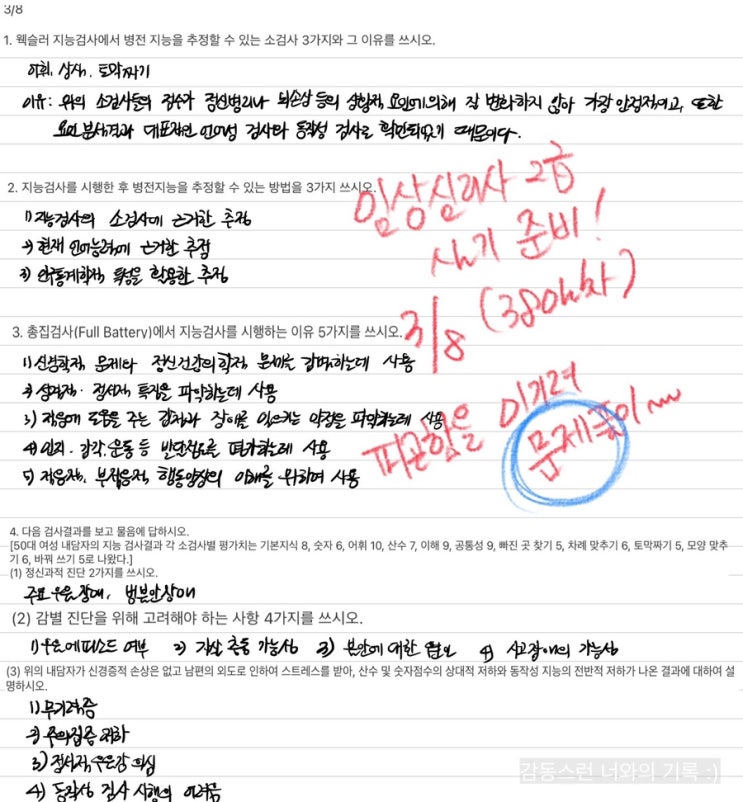 3/8
1. 웩슬러 지능검사에서 병전 지능을 추정할 수 있는 소검사 3가지와 그 이유를 쓰시오.
어휘, 상식, 토막짜기
이유: 위의 소검사들의 점수가 정신병리나 뇌손상 등의 상황적 요인에 의해 잘 변화하지 않아 가장 안정적이고, 또한
요인분석결과 대표적인 언어성 검사와 동작성 검사로 확인되었기 때문이다.
2. 지능검사를 시행한 후 병전지능을 추정할 수 있는 방법을 3가지 쓰시오.
1) 지능검사의 소검사에 근거한 추정
2) 현재 언어능력에 근거한 추정
3) 인구통계학적 특성을 활용한 추정
임상심리사 2급
실기 준비!
3/8 (380일차)
3. 총집검사(Full Battery)에서 지능검사를 시행하는 이유 5가지를 쓰시오.
1) 신경학적 문제와 정신건강의학적 문제를 감별하는데 사용
2) 성격적·정서적 특징을 파악하는데 사용
3) 적응에 도움을 주는 강점과 장애를 일으키는 약점을 파악하는데 사용
4) 인지·감각·운동 등 발달정도를 평가하는데 사용
5) 적응적, 부적응적 행동양상의 이해를 위하여 사용
피곤함을 이기려
문제풀이~~
4. 다음 검사결과를 보고 물음에 답하시오.
[50대 여성 내담자의 지능 검사결과 각 소검사별 평가치는 기본지식 8, 숫자 6, 어휘 10, 산수 7, 이해 9, 공통성 9, 빠진 곳 찾기 5, 차례 맞추기 6, 토막짜기 5, 모양 맞추
기 6, 바꿔 쓰기 5로 나왔다.]
(1) 정신과적 진단 2가지를 쓰시오.
주요우울장애, 범불안장애
(2) 감별 진단을 위해 고려해야 하는 사항 4가지를 쓰시오.
1) 우울에피소드 여부 2) 자살 충동 가능성 3) 불안에 대한 탐색 4) 사고장애의 가능성
(3) 위의 내담자가 신경증적 손상은 없고 남편의 외도로 인하여 스트레스를 받아, 산수 및 숫자점수의 상대적 저하와 동작성 지능의 전반적 저하가 나온 결과에 대하여 설
명하시오.
1) 무기력증
2) 주의집중 저하
3) 정서적 우울감 의심
4) 동작성 검사 시행의 어려움
감동스런 너와의 기록 :)